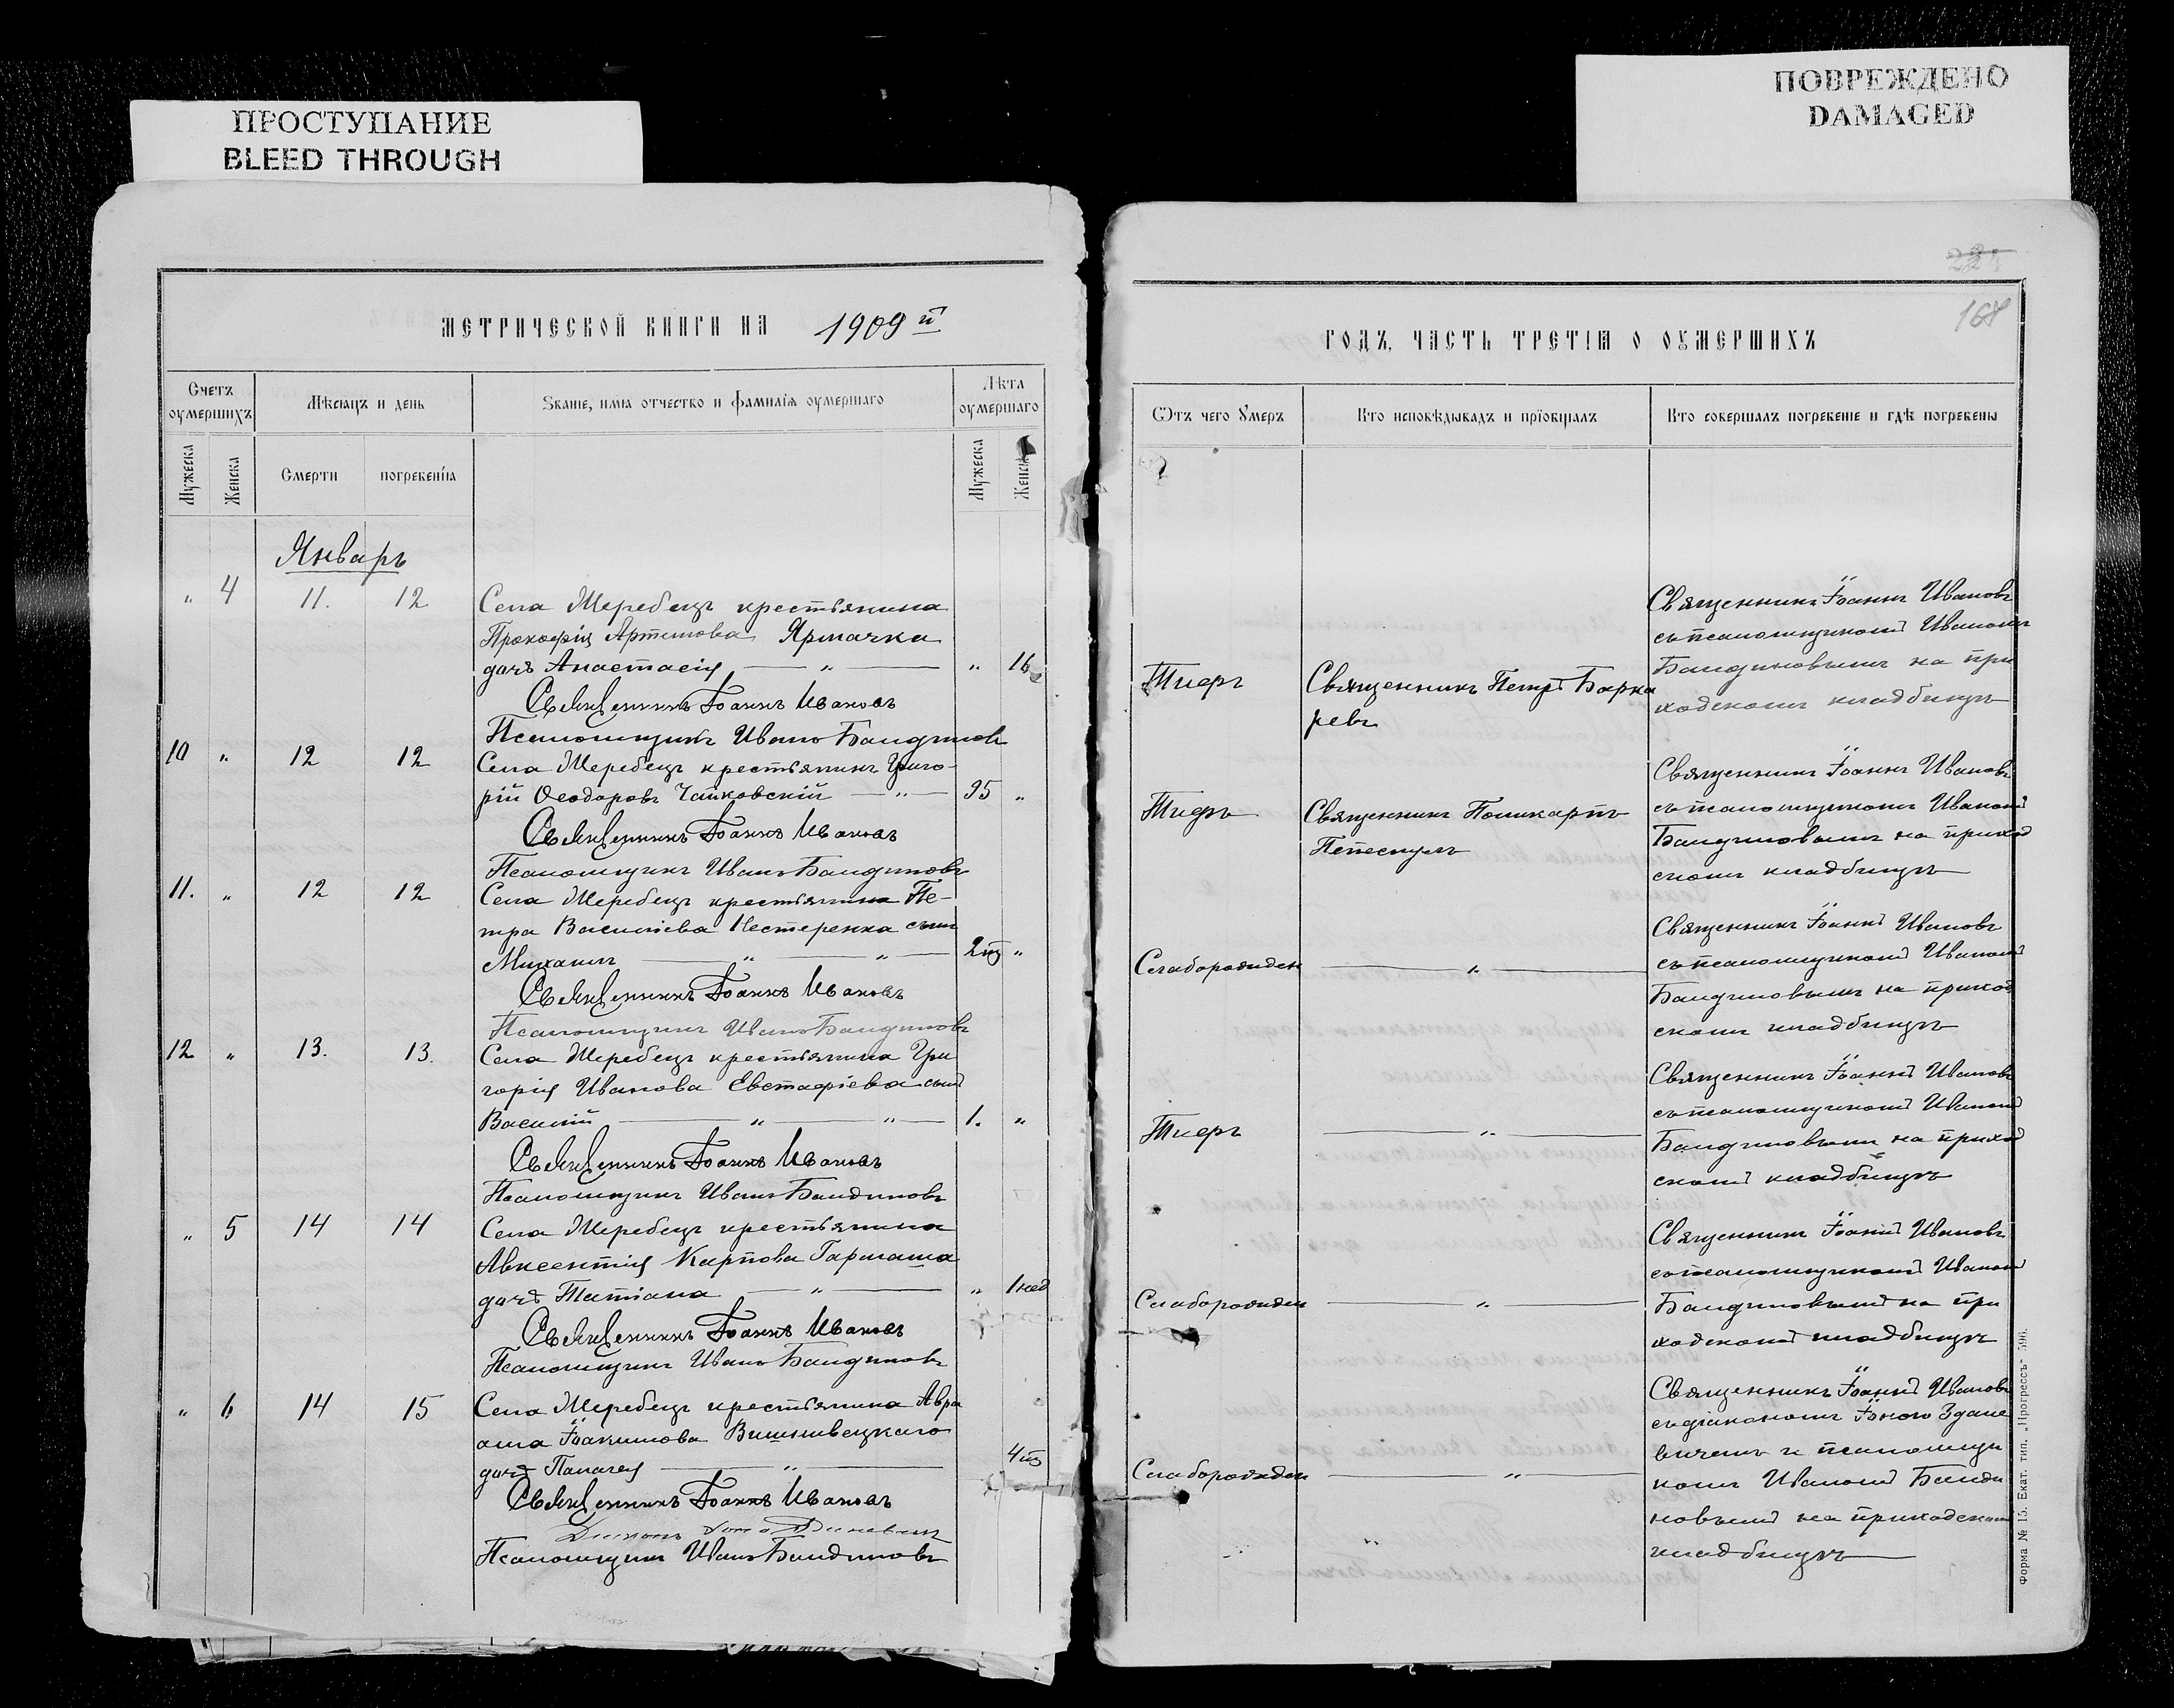 ПРОСТУПАНИЕ
BLEED THROUGH
ПОВРЕЖДЕНО
DAMAGED
168
МЕТРИЧЕСКОЙ КНИГИ НА 1909 й
ГОДЪ, ЧАСТЬ ТРЕТІЯ О ОУМЕРШИХЪ
Счетъ оумершихъ
Мѣсяцъ и день
Званіе, имя отчество и фамилія оумершаго
Лѣта оумершаго
Мужеска
Женска
Смерти
погребенія
Мужеска
Женска
Ѿтъ чего Умеръ
Кто исповѣдывалъ и пріобщалъ
Кто совершалъ погребеніе и гдѣ погребены
Январь
" 4 11. 12
Села Жеребецъ крестьянина
Прокофія Артемова Ярмачка
дочь Анастасія — " — " 16
Священникъ Іоаннъ Ивановъ
Псаломщикъ Иванъ Бандиновъ
Тифъ
Священникъ Петръ
Священникъ Іоаннъ Ивановъ
съ псаломщикомъ Иваномъ
Бандиновымъ на при
ходскомъ кладбищѣ
10 " 12 12
Села Жеребецъ крестьянинъ Григо-
рій Ѳеодоровъ Чайковскій — " — 95 "
Священникъ Іоаннъ Ивановъ
Псаломщикъ Иванъ Бандиновъ
Тифъ
Священникъ Поликарпъ
Священникъ Іоаннъ Ивановъ
съ псаломщикомъ Иваномъ
Бандиновымъ на приход
скомъ кладбищѣ
11. " 12 12
Села Жеребецъ крестьянина Пе-
тра Василіева Нестеренка сынъ
Михаилъ — " — " — 2 "
Священникъ Іоаннъ Ивановъ
Псаломщикъ Иванъ Бандиновъ
Слаборожден
— " —
Священникъ Іоаннъ Ивановъ
съ псаломщикомъ Иваномъ
Бандиновымъ на приход
скомъ кладбищѣ
12 " 13. 13.
Села Жеребецъ крестьянина Гри
горія Иванова Евстафіева сынъ
Василій — " — " — 1. "
Священникъ Іоаннъ Ивановъ
Псаломщикъ Иванъ Бандиновъ
Тифъ
— " —
Священникъ Іоаннъ Ивановъ
съ псаломщикомъ Иваномъ
Бандиновымъ на приход
скомъ кладбищѣ
" 5 14 14
Села Жеребецъ крестьянина
Авксентія Карпова Гармаша
дочь Татіана — " — " 1 нед
Священникъ Іоаннъ Ивановъ
Псаломщикъ Иванъ Бандиновъ
Слаборожден
— " —
Священникъ Іоаннъ Ивановъ
съ псаломщикомъ Иваномъ
Бандиновымъ на при
ходскомъ кладбищѣ
" 6 14 15
Села Жеребецъ крестьянина Авра
ама Іоакимова Вишнивецкаго
дочь Палагея — " — 4
Священникъ Іоаннъ Ивановъ
Діаконъ
Псаломщикъ Иванъ Бандиновъ
Слаборожден
— " —
Священникъ Іоаннъ Ивановъ
съ діакономъ Іоною Здане
вичемъ и псаломщи
комъ Иваномъ Банди
новымъ на приходскомъ
кладбищѣ
Форма № 15. Екат. тип. „Прогрессъ" 596.